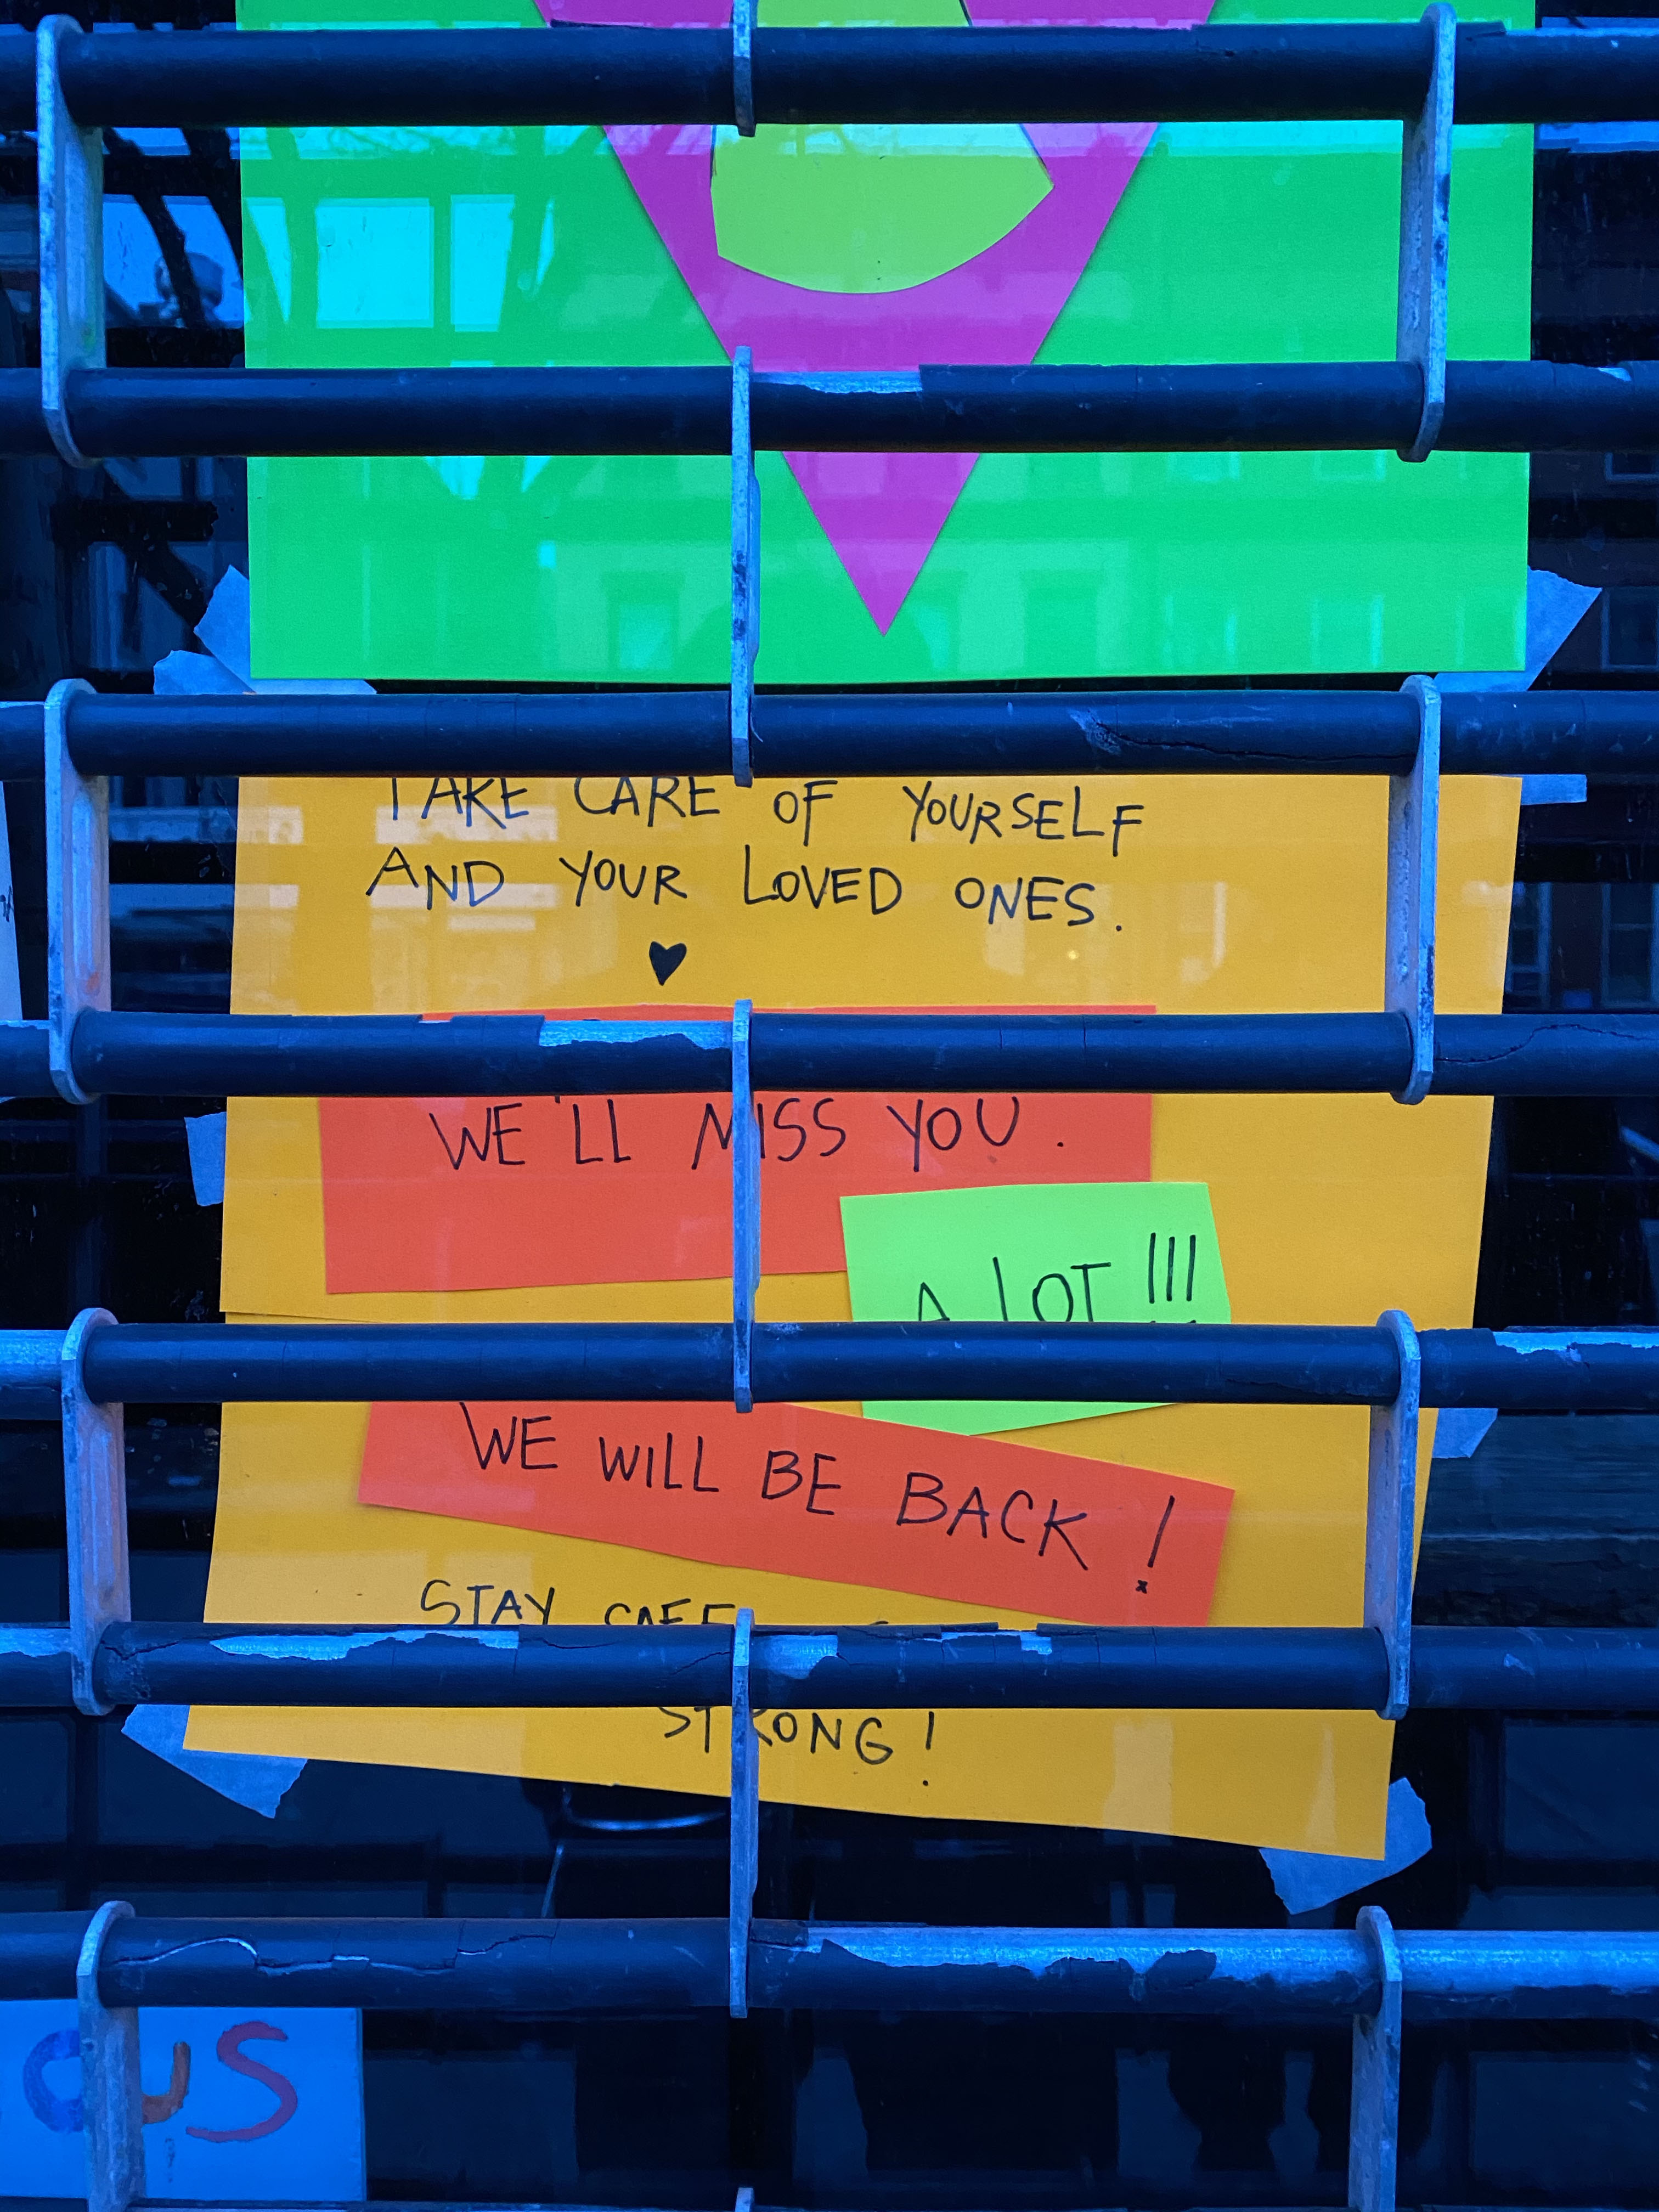 TAKE CARE OF YOURSELF
AND YOUR LOVED ONES.
WE'LL MISS YOU.
A LOT !!!
WE WILL BE BACK !
STAY SAFE
STRONG !